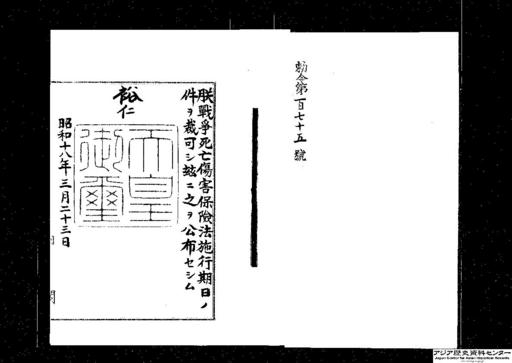 勅令第一百七十五號
朕戰爭死亡傷害保險法施行期日ノ
件ヲ裁可シ玆ニ之ヲ公布セシム
裕仁
天皇
御璽
昭和十八年三月二十三日
アジア歴史資料センター
Japan Center for Asian Historical Records